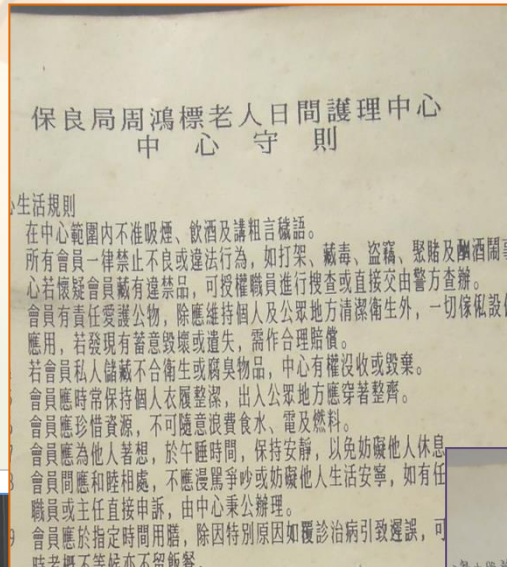 保良局周鴻標老人日間護理中心
中心守則
生活規則
在中心範圍內不准吸煙、飲酒及講粗言穢語。
所有會員一律禁止不良或違法行為，如打架、藏毒、盜竊、聚賭及酗酒鬧事
心若懷疑會員藏有違禁品，可授權職員進行搜查或直接交由警方查辦。
會員有責任愛護公物，除應維持個人及公眾地方清潔衛生外，一切傢俬設
應用，若發現有蓄意毀壞或遺失，需作合理賠償。
若會員私人儲藏不合衛生或腐臭物品，中心有權沒收或毀棄。
會員應時常保持個人衣履整潔，出入公眾地方應穿著整齊。
會員應珍惜資源，不可隨意浪費食水、電及燃料。
7 會員應為他人著想，於午睡時間，保持安靜，以免妨礙他人休息
8 會員間應和睦相處，不應漫罵爭吵或妨礙他人生活安寧，如有任
職員或主任直接申訴，由中心秉公辦理。
9 會員應於指定時間用膳，除因特別原因如覆診治病引致遲誤，可
時者概不等候亦不留飯餐